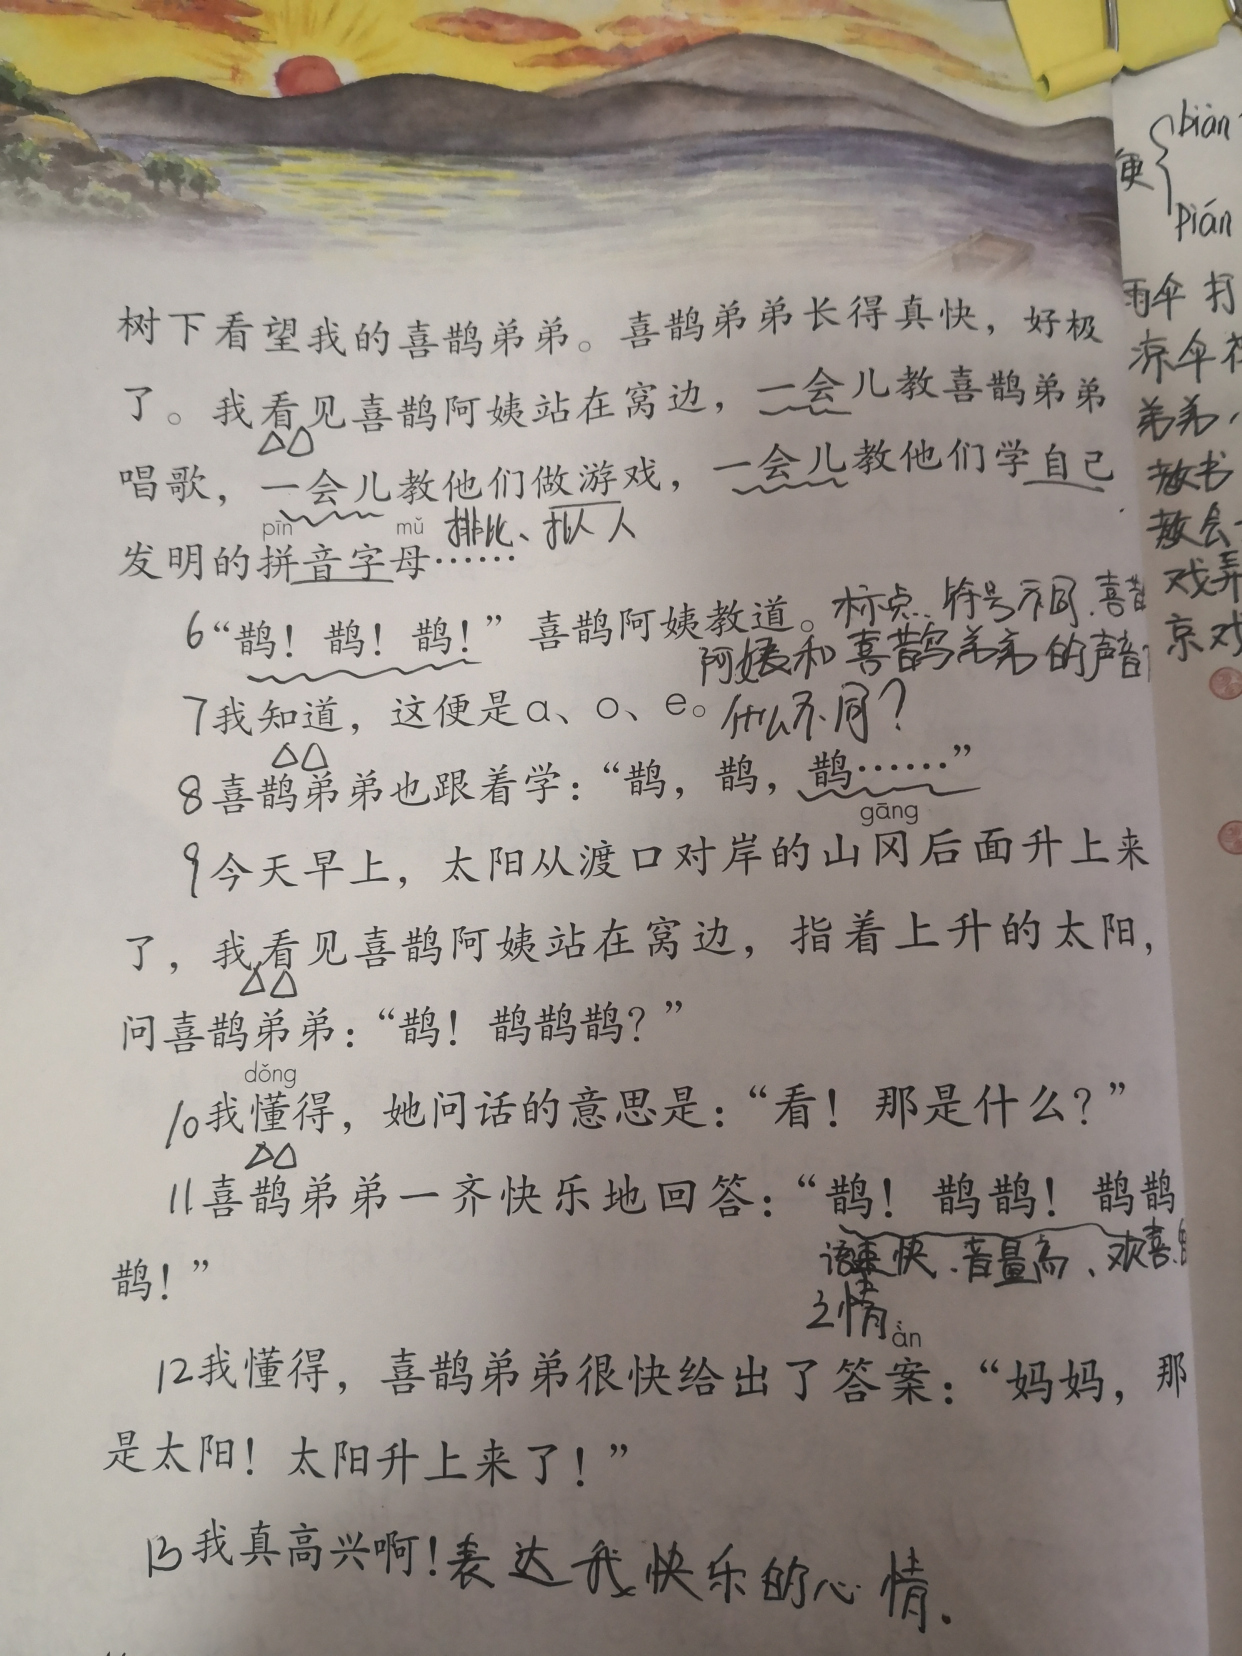 树下看望我的喜鹊弟弟。喜鹊弟弟长得真快，好极
了。我看见喜鹊阿姨站在窝边，一会儿教喜鹊弟弟
唱歌，一会儿教他们做游戏，一会儿教他们学自己
pīn mǔ 排比、拟人
发明的拼音字母……
6“鹊！鹊！鹊！”喜鹊阿姨教道。标点符号不同.喜鹊
阿姨和喜鹊弟弟的声音
7我知道，这便是ɑ、o、e。什么不同？
8喜鹊弟弟也跟着学：“鹊，鹊，鹊……”
gāng
9今天早上，太阳从渡口对岸的山冈后面升上来
了，我看见喜鹊阿姨站在窝边，指着上升的太阳，
问喜鹊弟弟：“鹊！鹊鹊鹊？”
dǒng
10我懂得，她问话的意思是：“看！那是什么？”
11喜鹊弟弟一齐快乐地回答：“鹊！鹊鹊！鹊鹊
鹊！”
快.音量高、欢喜
之情
àn
12我懂得，喜鹊弟弟很快给出了答案：“妈妈，那
是太阳！太阳升上来了！”
13我真高兴啊！表达我快乐的心情.
便 biàn
pián
雨伞 打
凉伞
弟弟
教书
教会
戏弄
京戏